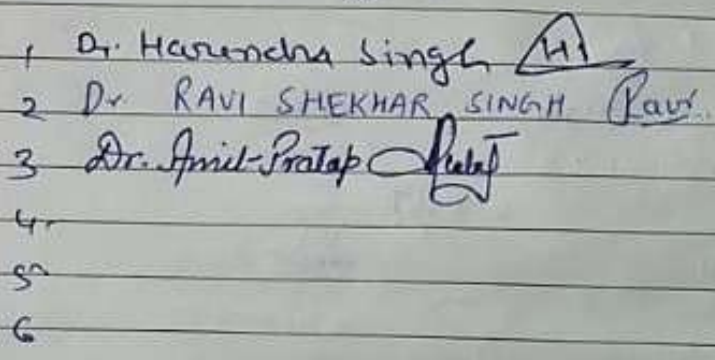 1 Dr. Harendra Singh
2 Dr RAVI SHEKHAR SINGH Ravi
3 Dr. Amit-Pratap
4.
5
6